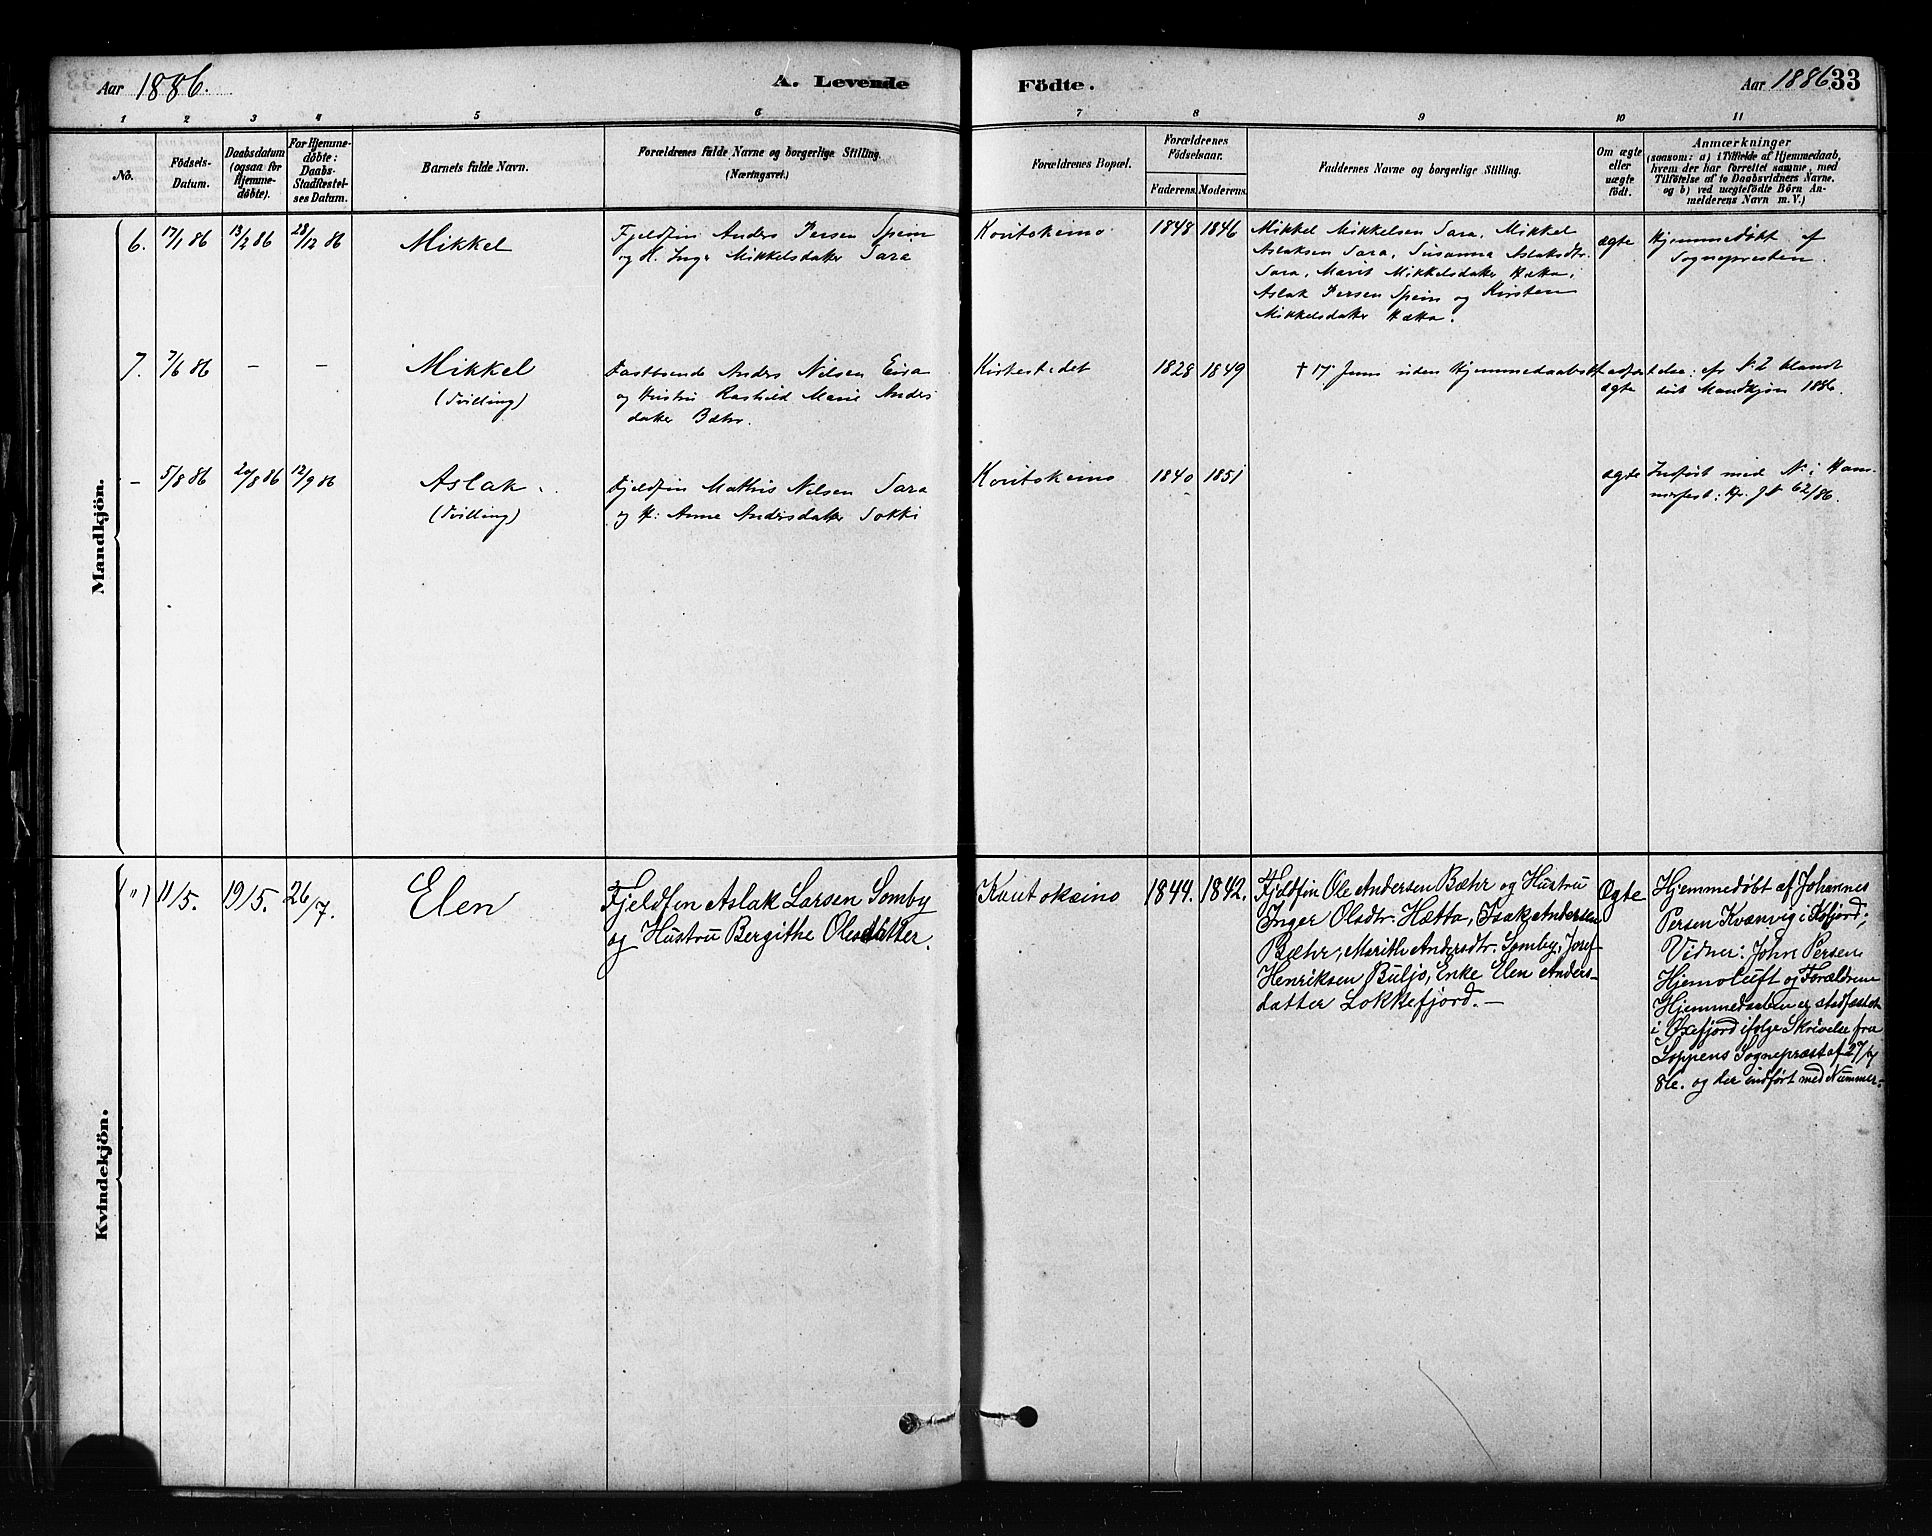 Aar 1886.
A. Levende
Födte.
Aar 1886 33
1 2 3 4 5 6 7 8 9 10 11
No.
Födsels-
Datum.
Daabsdatum
(ogsaa for
Hjemme-
döbte).
For Hjemme-
döbte:
Daabs-
Stadfæstel-
ses Datum.
Barnets fulde Navn.
Forældrenes fulde Navne og borgerlige Stilling.
(Næringsvei.)
Forældrenes Bopæl.
Forældrenes
Födselsaar.
Faderens. Moderens.
Faddernes Navne og borgerlige Stilling.
Om ægte
eller
uægte
födt.
Anmærkninger
(saasom: a) i Tilfælde af Hjemmedaab,
hvem der har forrettet samme, med
Tilföielse af to Daabsvidners Navne.
og b) ved uægtefödte Börn An-
melderens Navn m. V.)
Mandkjön.
6. 17/1 86 13/2 86 28/12 86
Mikkel
Fjeldfin Anders Persen Spein
og H. Inga Mikkelsdatter Sara
Koutokeino
1848 1846
Mikkel Mikkelsen Sara, Mikkel
Aslaksen Sara, Susanna Aslaksdtr.
Sara, Marit Mikkelsdatter Hætta,
Aslak Persen Spein og Kirsten
Mikkelsdatter Hætta.
ægte
Hjemmedøbt af
Sognepresten.
7. 7/6 86 - -
Mikkel
(Tvilling)
Fastboende Anders Nilsen Eira
og Hustru Ravhild Marie Anders
datter Bæhr.
Kirkestedet
1828 1849
† 17 Juni uden Hjemmedaab
ægte
No 2 blandt
døde Mandkjøn 1886.
- 5/8 86 20/8 86 12/9 86
Aslak.
(Tvilling)
Fjeldfin Mathis Nilsen Sara
og H: Anne Andersdatter Sokki
Koutokeino
1840 1851
ægte
Indført med No i Ham-
merfest: No 62/86.
Kvindekjön.
(") 11/5. 19/5. 26/7.
Elen
Fjeldfin Aslak Larsen Somby
og Hustru Bergithe Olesdatter.
Kautokeino
1844. 1842.
Fjeldfin Ole Andersen Bæhr og Hustru
Inger Olsdtr. Hætta, Isak Andersen
Bæhr, Marith Andersdtr. Somby, Josef
Henriksen Buljo, Enke Elen Anders-
datter Lokkefjord. —
Ægte
Hjemmedøbt af Johannes
Persen Kvænvig i Kofjord;
Vidner: John Persen
Hjemoluft og Forældrene
Hjemmedaaben er stadfæstet
i Øxfjord ifølge Skrivelse fra
Loppens Sognepræst af 27/7
86. og der indført med Nummer.